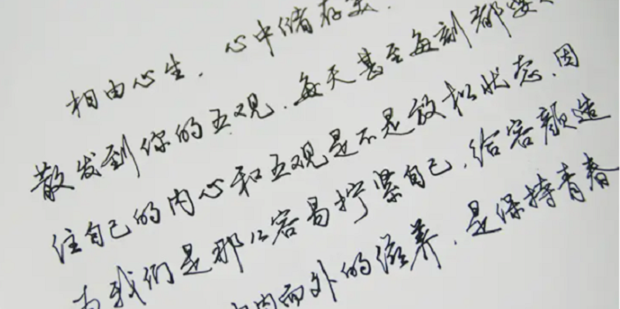 相由心生，心中储存美．
散发到你的五观．每天甚至每刻都要
住自己的内心和五观是不是放松状态．因
为我们是那么容易拧紧自己．给容颜造
内而外的滋养．是保持青春